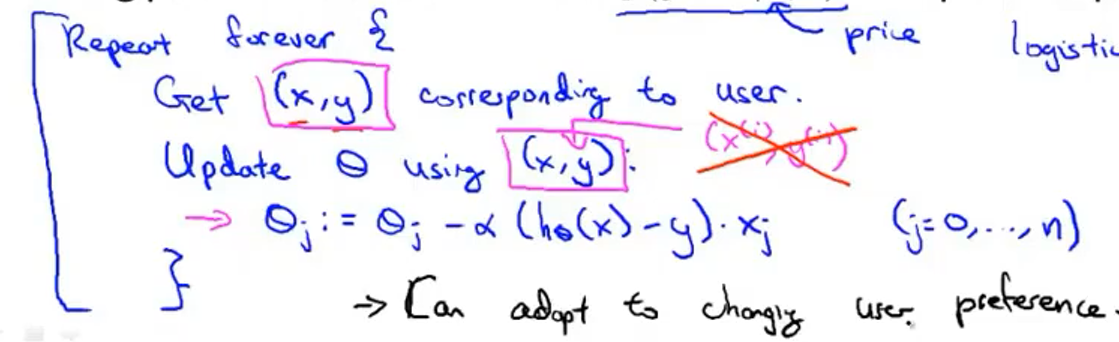 price logistic
Repeat forever {
Get (x,y) corresponding to user.
Update θ using (x,y): (x⁽ⁱ⁾,y⁽ⁱ⁾)
→ θⱼ := θⱼ - α (hθ(x) - y) · xⱼ (j=0,...,n)
}
→ Can adapt to changing user preference.